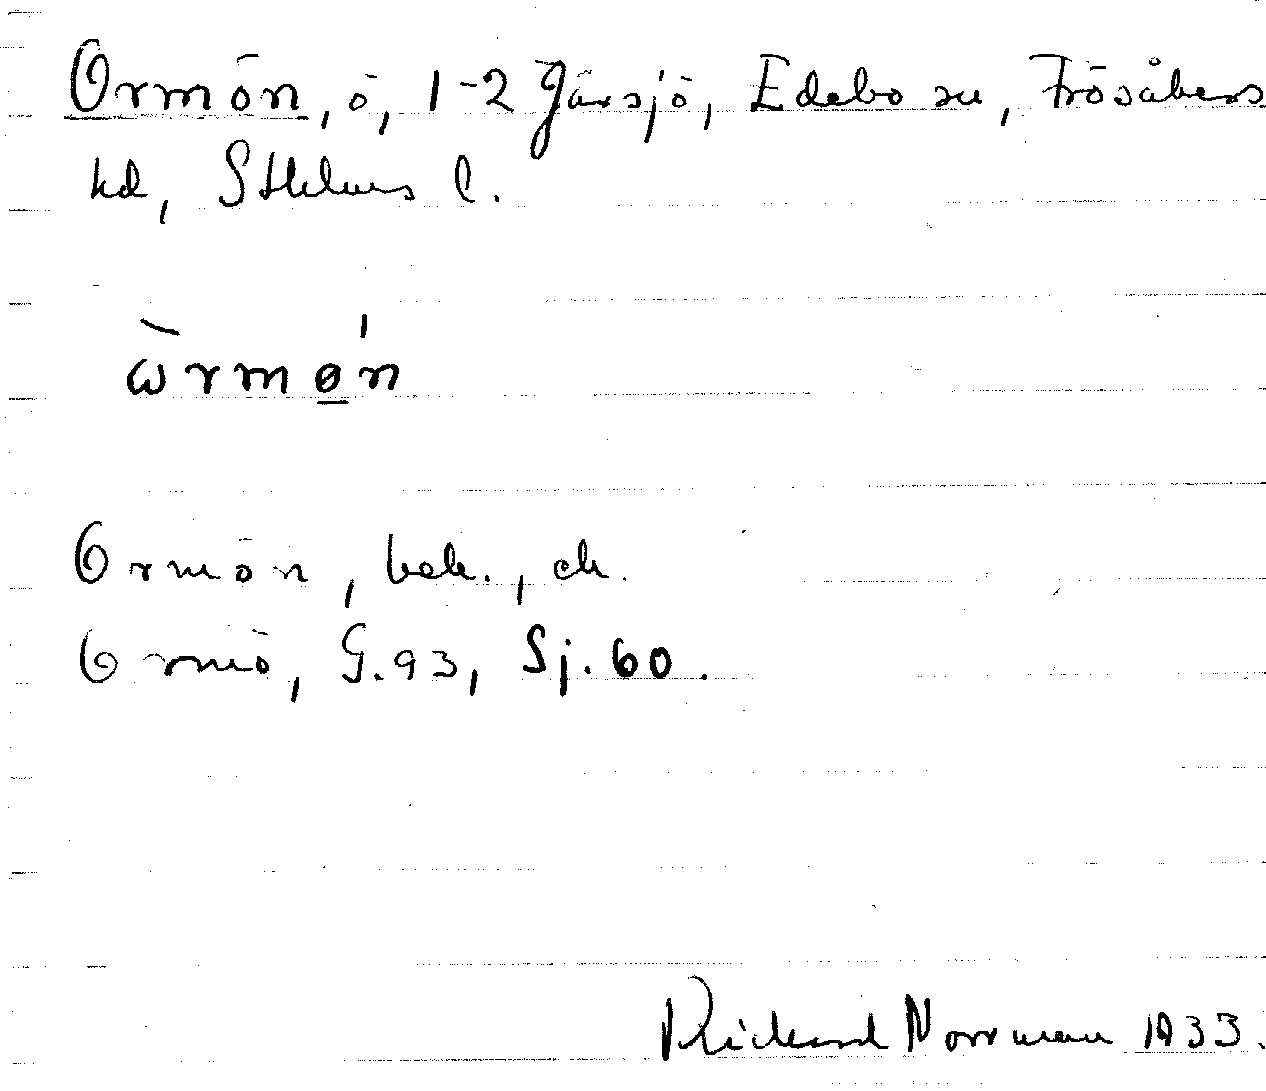 Ormön, ö, 1-2 Gävsjö, Edebo sn, Frösåkers
hd, Sthlms l.
ὼrmøń
Ormön, bek., ek.
Ormö, G.93, Sj.60.
Rickard Norrman 1933.